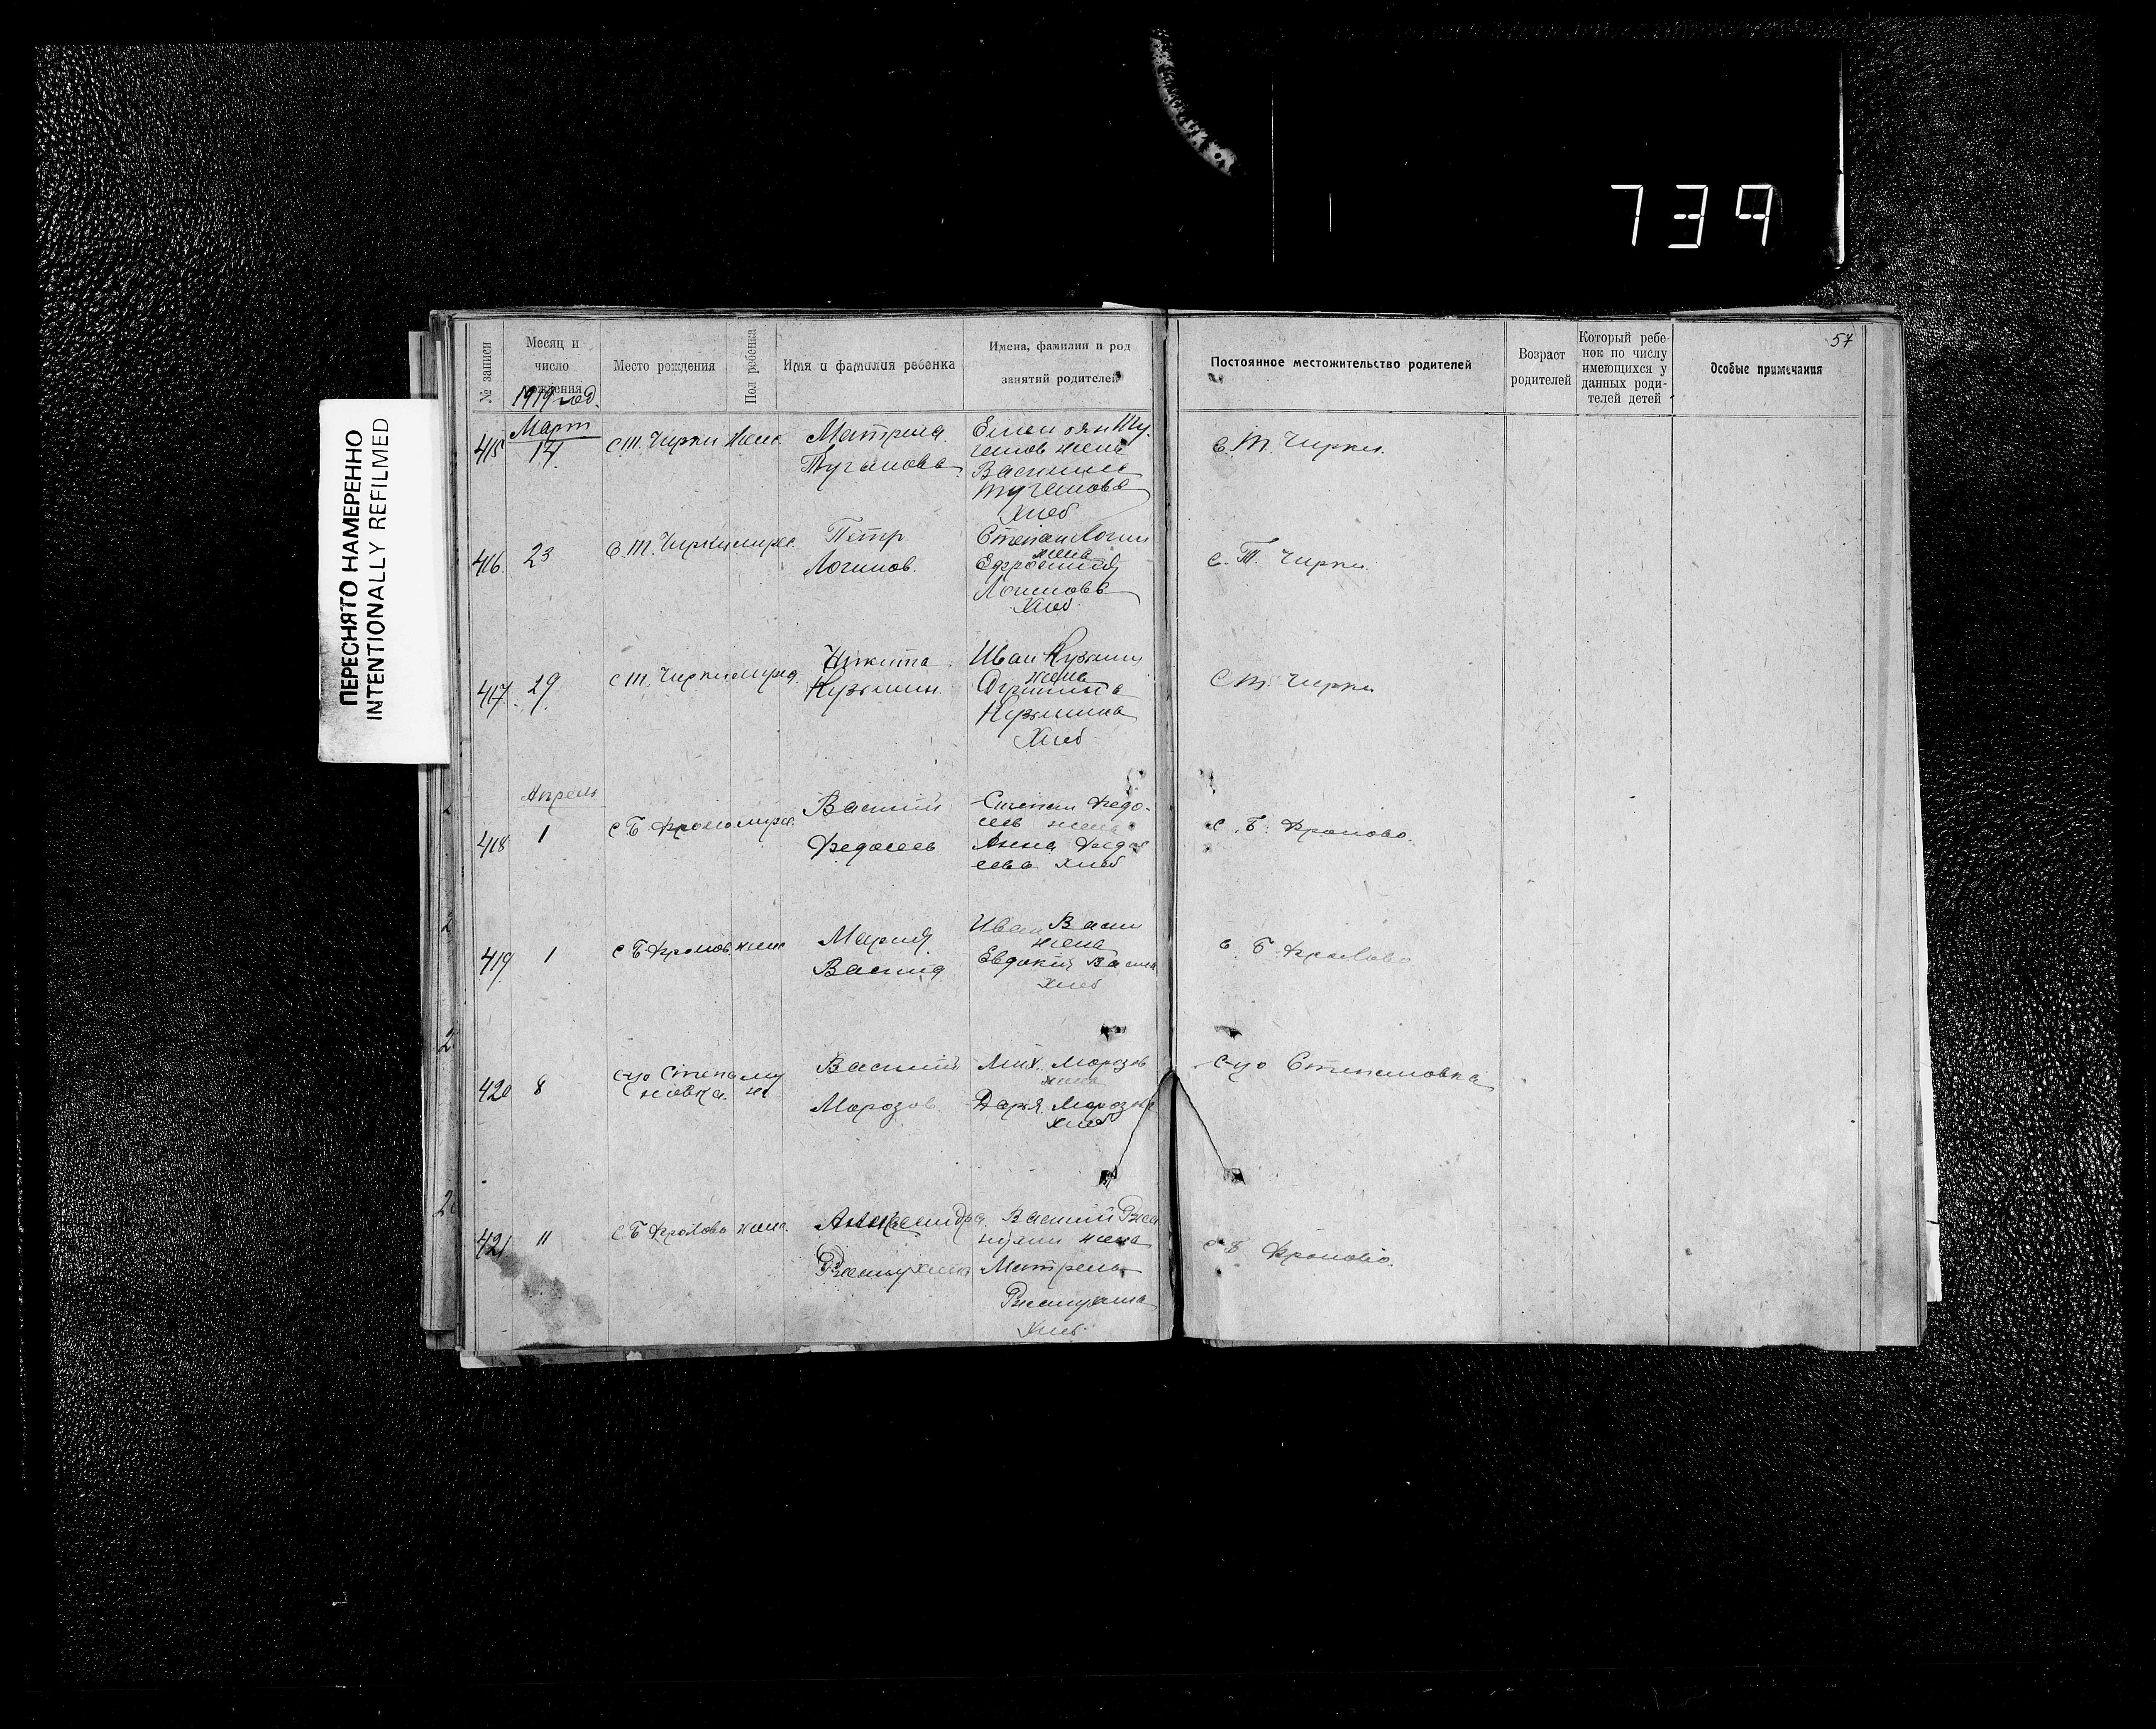 739
ПЕРЕСНЯТО НАМЕРЕННО
INTENTIONALLY REFILMED
57
№ записи
Месяц и число рождения
Место рождения
Пол ребенка
Имя и фамилия ребенка
Имена, фамилии и род занятий родителей
Постоянное местожительство родителей
Возраст родителей
Который ребенок по числу имеющихся у данных родителей детей
Особые примечания
1919 год.
Март
415 14 с Т. Чирки женс.
Матрена
Туганова
жена
Хлеб
с. Т. Чирки.
416. 23 с. Т. Чирки мужс.
Петр
Логинов.
Степан Логин
жена
Ефросиния
Логинова
Хлеб
с. Т. Чирки.
417. 29. с Т. Чирки мужс.
Никита
Кузьмин.
Иван Кузьмин
жена
Кузьмина
Хлеб
с Т. Чирки
Апрель
418 1 с Б Фролово мужс.
Василий
Федосеев
Степан Федо-
сеев жена
Анна Федос
еева хлеб
с. Б. Фролово.
419. 1 с Б Фролов. женс
Мария
Иван Васи
жена
Евдокия Васил
хлеб
с. Б. Фролово
420 8 с-цо Степа му
новка. ж
Василий
Морозов
Мих. Морозов
жена
Дарья Морозова
хлеб
с-цо Степановка
421 11 с Б Фролово женс.
Александра
Василий
жена
Матрена
Хлеб
с Б Фролово.